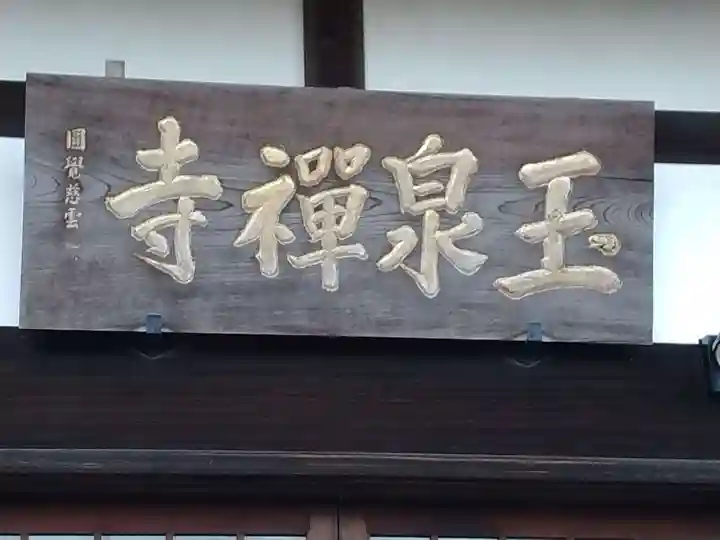 玉泉禪寺
圓覺慈雲